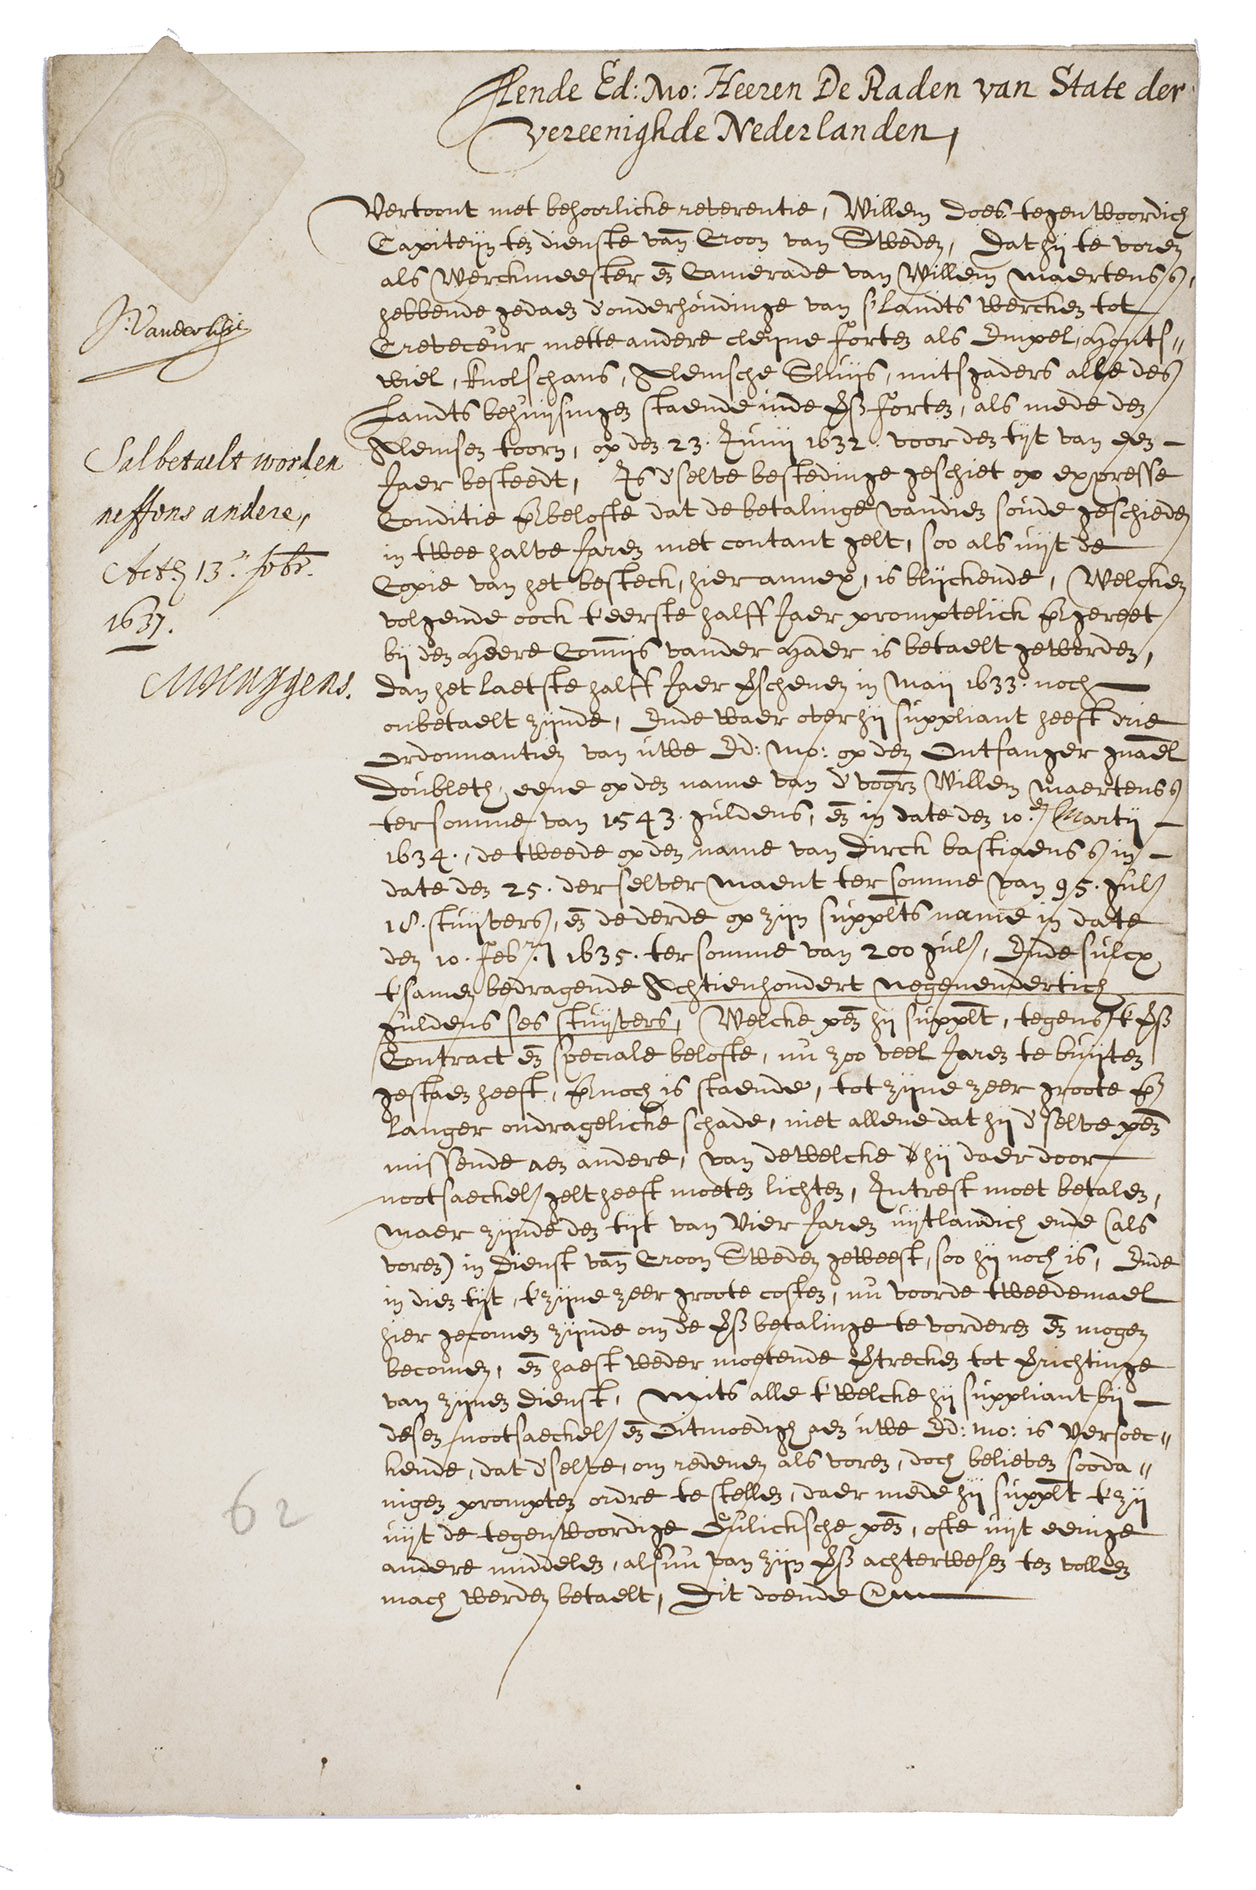 Aende Ed: Mo: Heeren De Raden van State der
vereenighde Nederlanden,
Vertoont met behoorlicke reverentie, Willem Does tegenwoordich
Capiteijn ten dienste van Croon van Sweden, Dat hij te voren
als Werckmeester en Camerade van Willem Maertenss,
hebbende gedaen d'onderhoudinge van s'landts wercken tot
Creveceur mette andere cleijne forten als Empel, Honts-
wiel, knolschans, Alemsche Sluijs, mitsgaders alle des
Landts behuijsingen staende inde forten, als mede den
Alemsen toorn, op den 23. Junij 1632. voor den tijt van een
Jaer besteedt, Is d'selve bestedinge geschiet op expresse
Conditie beloste dat de betalinge vandien soude geschieden
in twee halve Jaren met contant gelt, soo als uijt de
Copie van het besteck, hier annex, is blijckende, Welcken
volgende oock t'eerste halff Jaer promptelijck gereet
bij den Heere Commijs vander Haer is betaelt geworden,
dan het laetste halff Jaer in Maij 1633. noch
onbetaelt zijnde, Ende waer over hij suppliant heeft drie
Ordonnantien van uwe Ed: Mo: op den Ontfanger
Doubleth, eene op den name van d'voorn Willem Maertenss
ter somme van 1543. guldens, en in date den 10.en Martij
1634., de tweede op den name van Dirck bastiaenss in
date den 25. der selver maent ter somme van 95. gul
stuijvers, en de derde op zijn supplts name in date
den 10. Feb. 1635. ter somme van 200 gul, Ende sulcx
t'samen bedragende Achtienhondert negenendertich
guldens ses stuijvers, Welcke pen hij supplt, tegens t'
Contract en speciale belofte, nu zoo veel Jaren te buijten
gestaen heeft, noch is staende, tot zijne zeer groote
langer ondragelicke schade, niet allene dat hij d'selve pen
missende aen andere, van dewelcke hij daer door
nootsaeckel gelt heeft moeten lichten, Intrest moet betalen,
maer zijnde den tijt van vier Jaren uijtlandich ende (als
voren) in dienst van Croon Sweden geweest, soo hij noch is, Ende
in dien tijt, t'zijne zeer groote costen, nu voorde tweedemael
hier gecomen zijnde om de betalinge te vorderen en mogen
becomen, en haest weder moetende trecken tot richtinge
van zijnen dienst, Mits alle t'welcke hij suppliant bij
desen nootsaeckel en Oitmoedigh aen uwe Ed: Mo: is versoec-
kende, dat d'selve, om redenen als voren, doch believen sooda-
nigen prompten ordre te stellen, daer mede hij supplt t'zij
uijt de tegenwoordige Gulicksche pen, ofte uijt eenige
andere middelen, alsnu van zijn achterwesen ten vollen
mach werden betaelt, Dit doende
Sal betaelt worden
neffens andere,
Act 13.
1637.
M Huygens.
62